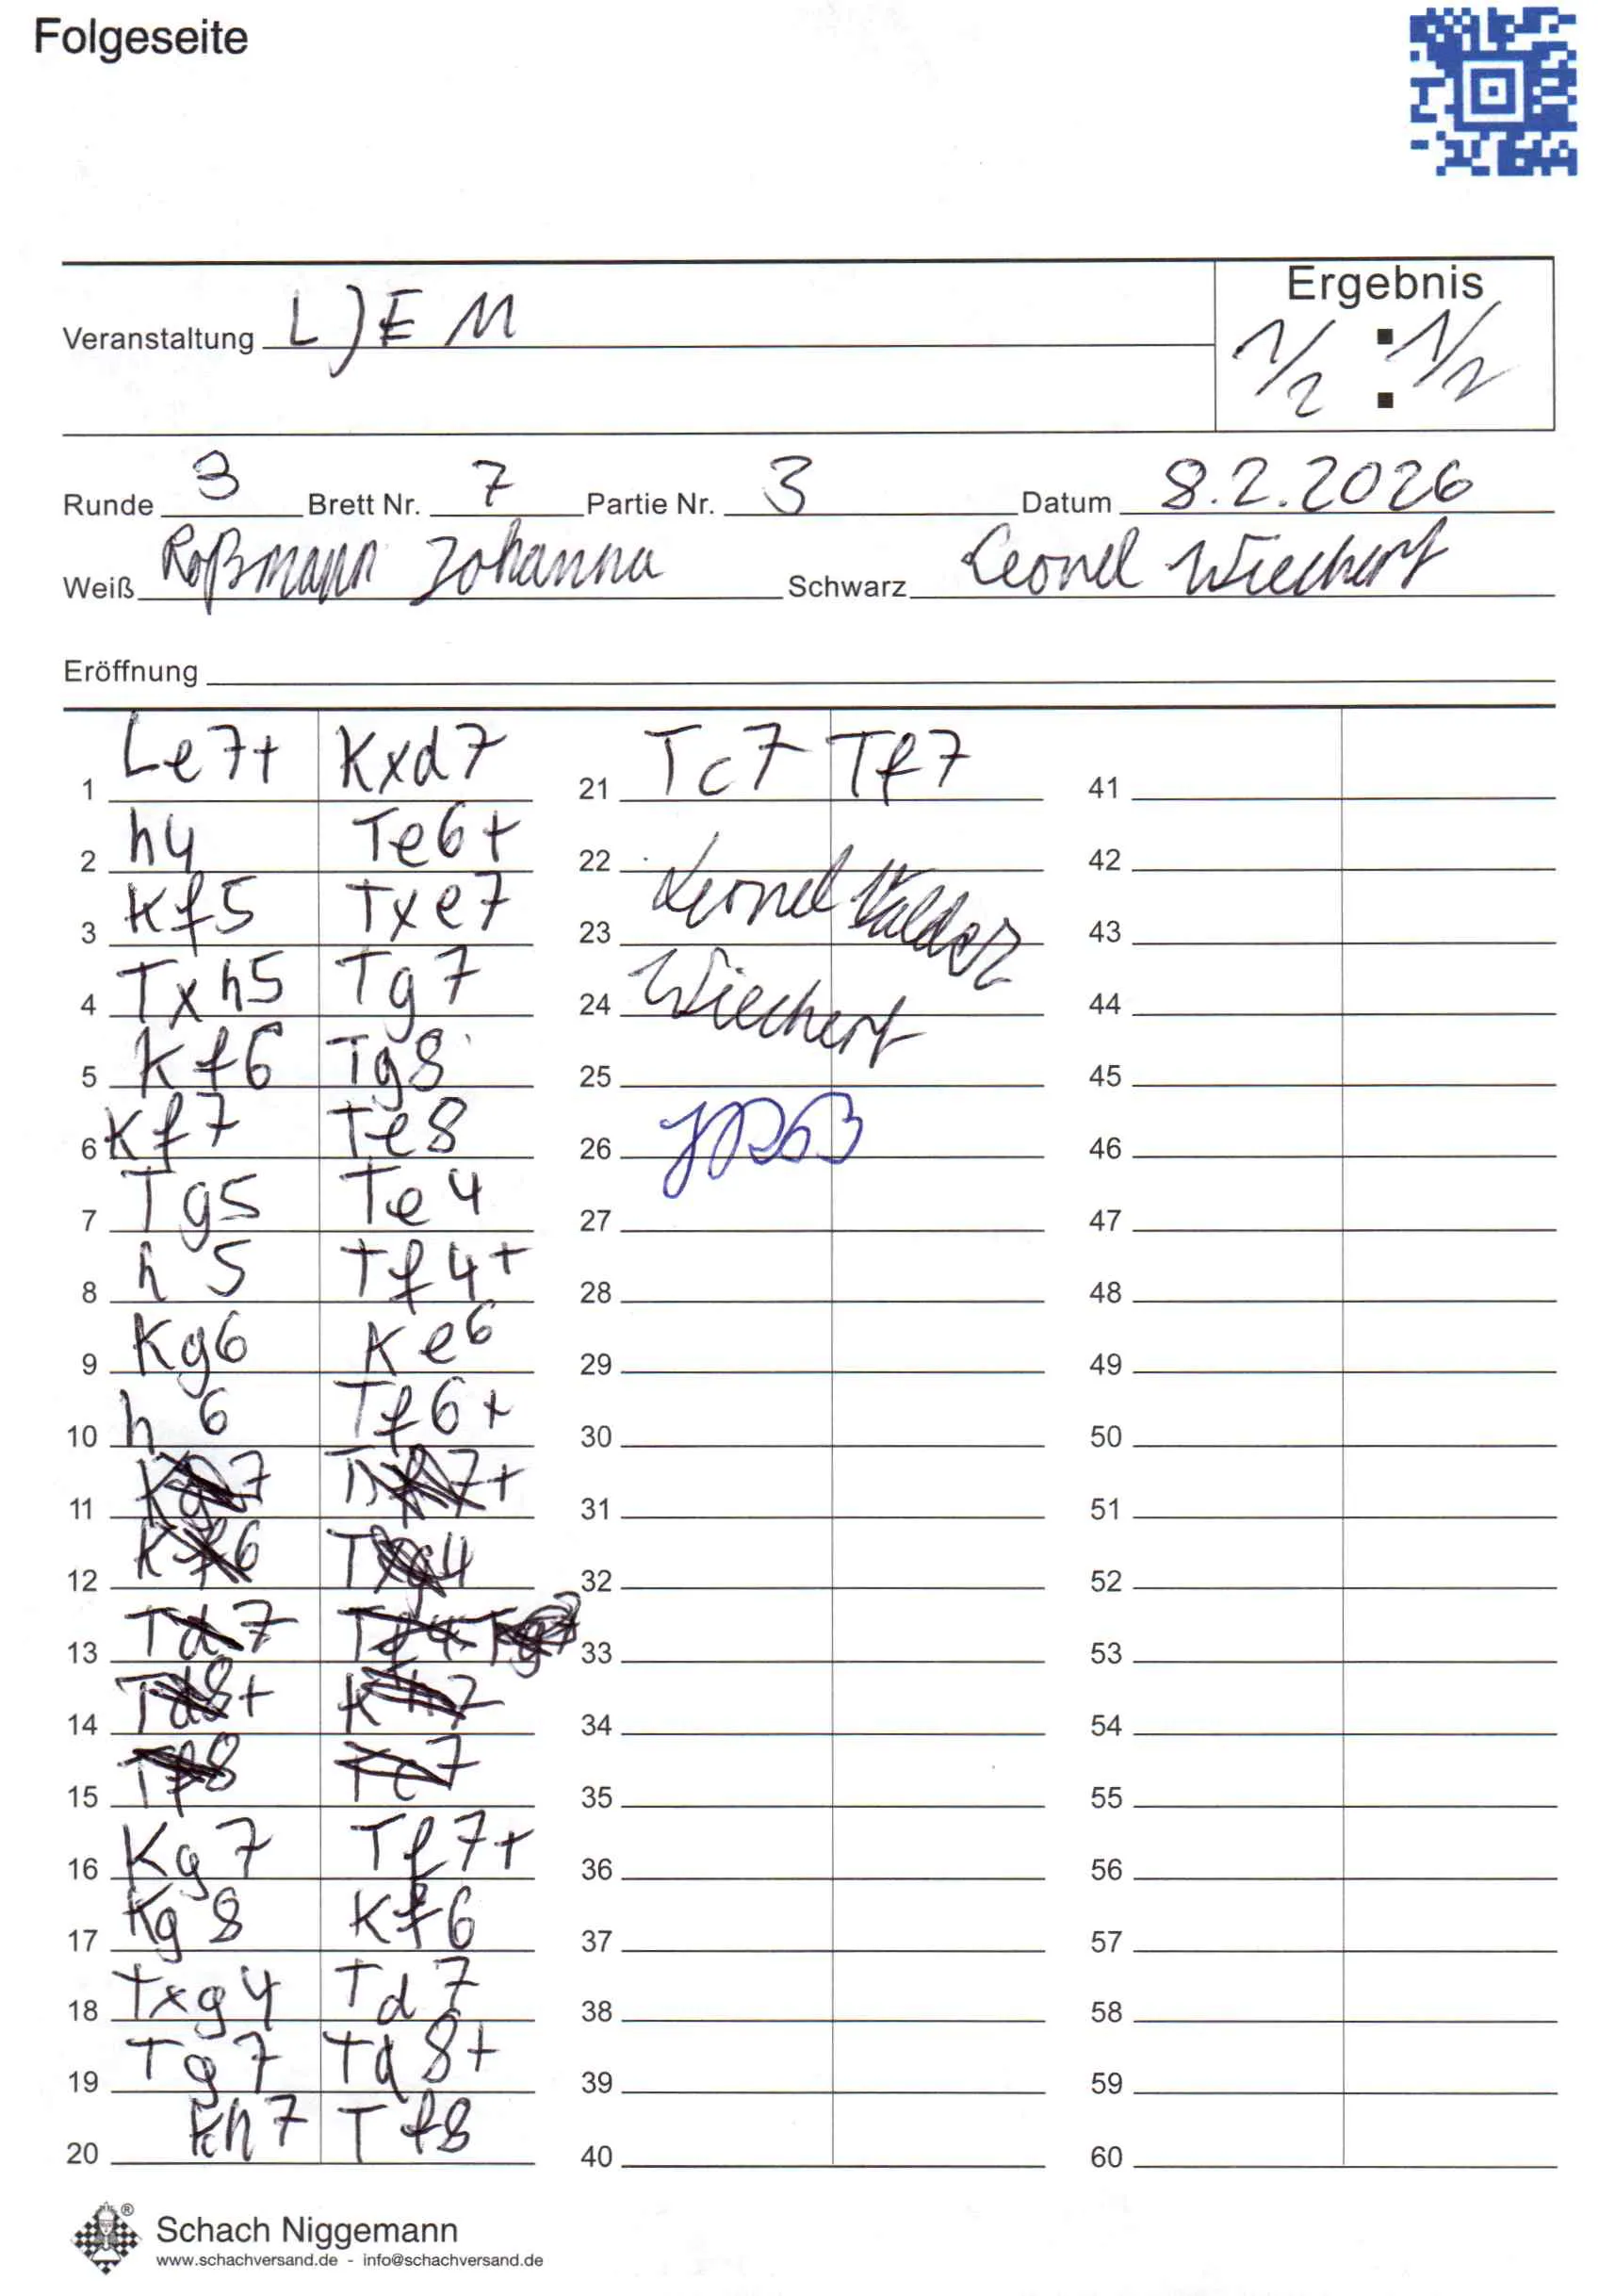 Folgeseite
Veranstaltung LJEM
Ergebnis
1/2 : 1/2
Runde 3 Brett Nr. 7 Partie Nr. 3 Datum 8.2.2026
Weiß Roßmann Johanna Schwarz Leonel Wiechert
Eröffnung
1 Le7+ Kxd7
2 h4 Te6+
3 Kf5 Txe7
4 Txh5 Tg7
5 Kf6 Tg8
6 Kf7 Te8
7 Tg5 Te4
8 h5 Tf4+
9 Kg6 Ke6
10 h6 Tf6+
11 Kg7 Tf7+
12 Kf6 Txg4
13 Td7
14 Td8+ Kh7
15 Tf8 Tc7
16 Kg7 Tf7+
17 Kg8 Kf6
18 Txg4 Td7
19 Tg7 Td8+
20 Kh7 Tf8
21 Tc7 Tf7
22
23 Leonel
24 Wiechert
25
26
27
28
29
30
31
32
33
34
35
36
37
38
39
40
41
42
43
44
45
46
47
48
49
50
51
52
53
54
55
56
57
58
59
60
Schach Niggemann
www.schachversand.de - info@schachversand.de